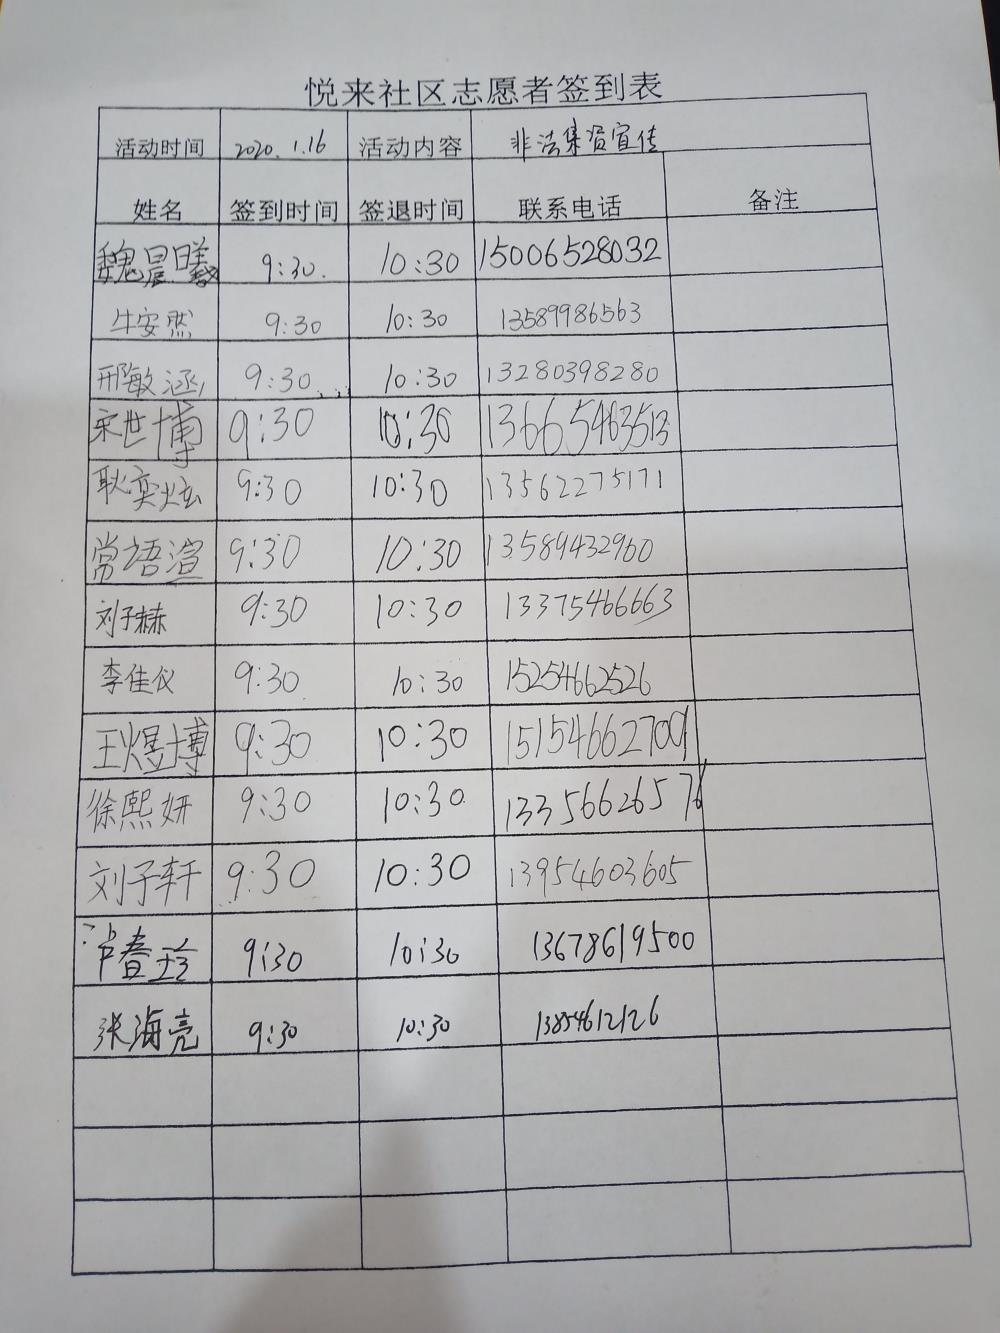 悦来社区志愿者签到表
活动时间 2020.1.16 活动内容 非法集资宣传
姓名 签到时间 签退时间 联系电话 备注
魏晨曦 9:30. 10:30 15006528032
牛安然 9:30 10:30 13589986563
邢敏涵 9:30 10:30 13280398280
宋世博 9:30 10:30 13665463513
耿奕炫 9:30 10:30 13562275171
常语渲 9:30 10:30 13589432960
刘子赫 9:30 10:30 13375466663
李佳仪 9:30 10:30 15254662526
王煜博 9:30 10:30 15154662709
徐熙妍 9:30 10:30 13356626576
刘子轩 9:30 10:30 13954603605
9:30 10:30 13678619500
张海亮 9:30 10:30 13854612126